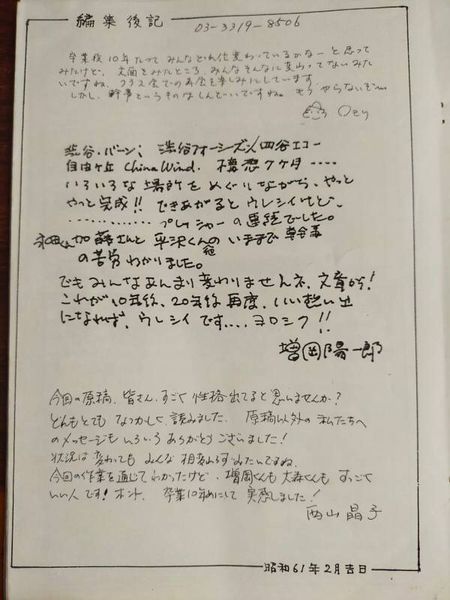 編集後記
03-3319-8506
卒業後10年たって みんなどれ位変わっているかなーと思って
みたけど、文面をみたところ、みんなそんなに変わってないみた
いですね。クラス会での再会を楽しみにしています。
しかし、幹事というものはしんどーいですね。もうやらないぞ…
Ozy
渋谷・バーン; 渋谷フォーシーズン/四谷エコー
自由ヶ丘 China Wind. 構想7ヶ月 ‥‥
いろいろな場所をめぐりながら、やっと
やっと完成!! できあがるとウレシイけど、
‥‥‥‥‥‥ プレッシャーの連続でした。
和田くん加藤さんと平沢くんのいままで
の苦労わかりました。
でもみんなあんまり変わりませんネ、文章が!
これが10年後、20年後再度、いい想い出
になれば、ウレシイです‥‥ヨロシク!!
増岡陽一郎
今回の原稿、皆さん、すごく性格出てると思いませんか?
とんもとても なつかしく 読みました。 原稿以外の私たちへ
のメッセージもいろいろ ありがとうございました!
状況は変わっても みんな 相変わらずみたいですね。
今回の作業を通じてわかったけど、増岡くんも大森くんも すっごく
いい人です! ホント、 卒業10年めにして 実感しました!
西山晶子
昭和61年2月吉日